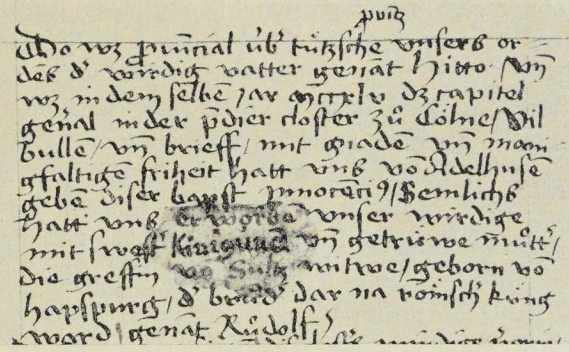 pvītz
Do wz provincial üb̄ tützsche unsers or
dēs d̕ wirdig vatter genāt hitto. Vn̄
wz in dem selbē jar mccxlv dz capitel
gen̄al in der p̄dier closter zů Cölne / Vil
bullen / vn̄ brieff / mit gnaden vn̄ mani
gfaltigen friheit hatt uns vō Adelhusē
gebēn diser bapst Innocēciꝯ / Semlichs
hatt uns Erworbē unser wirdige
mit swest̕ Künigund vn̄ getrüwe můtt̕ /
die greffin vō Sultz witwe / geborn vō
hapspurg / d̕ brůd̕ dar na römisch̕ küng
ward / genāt Růdolf /